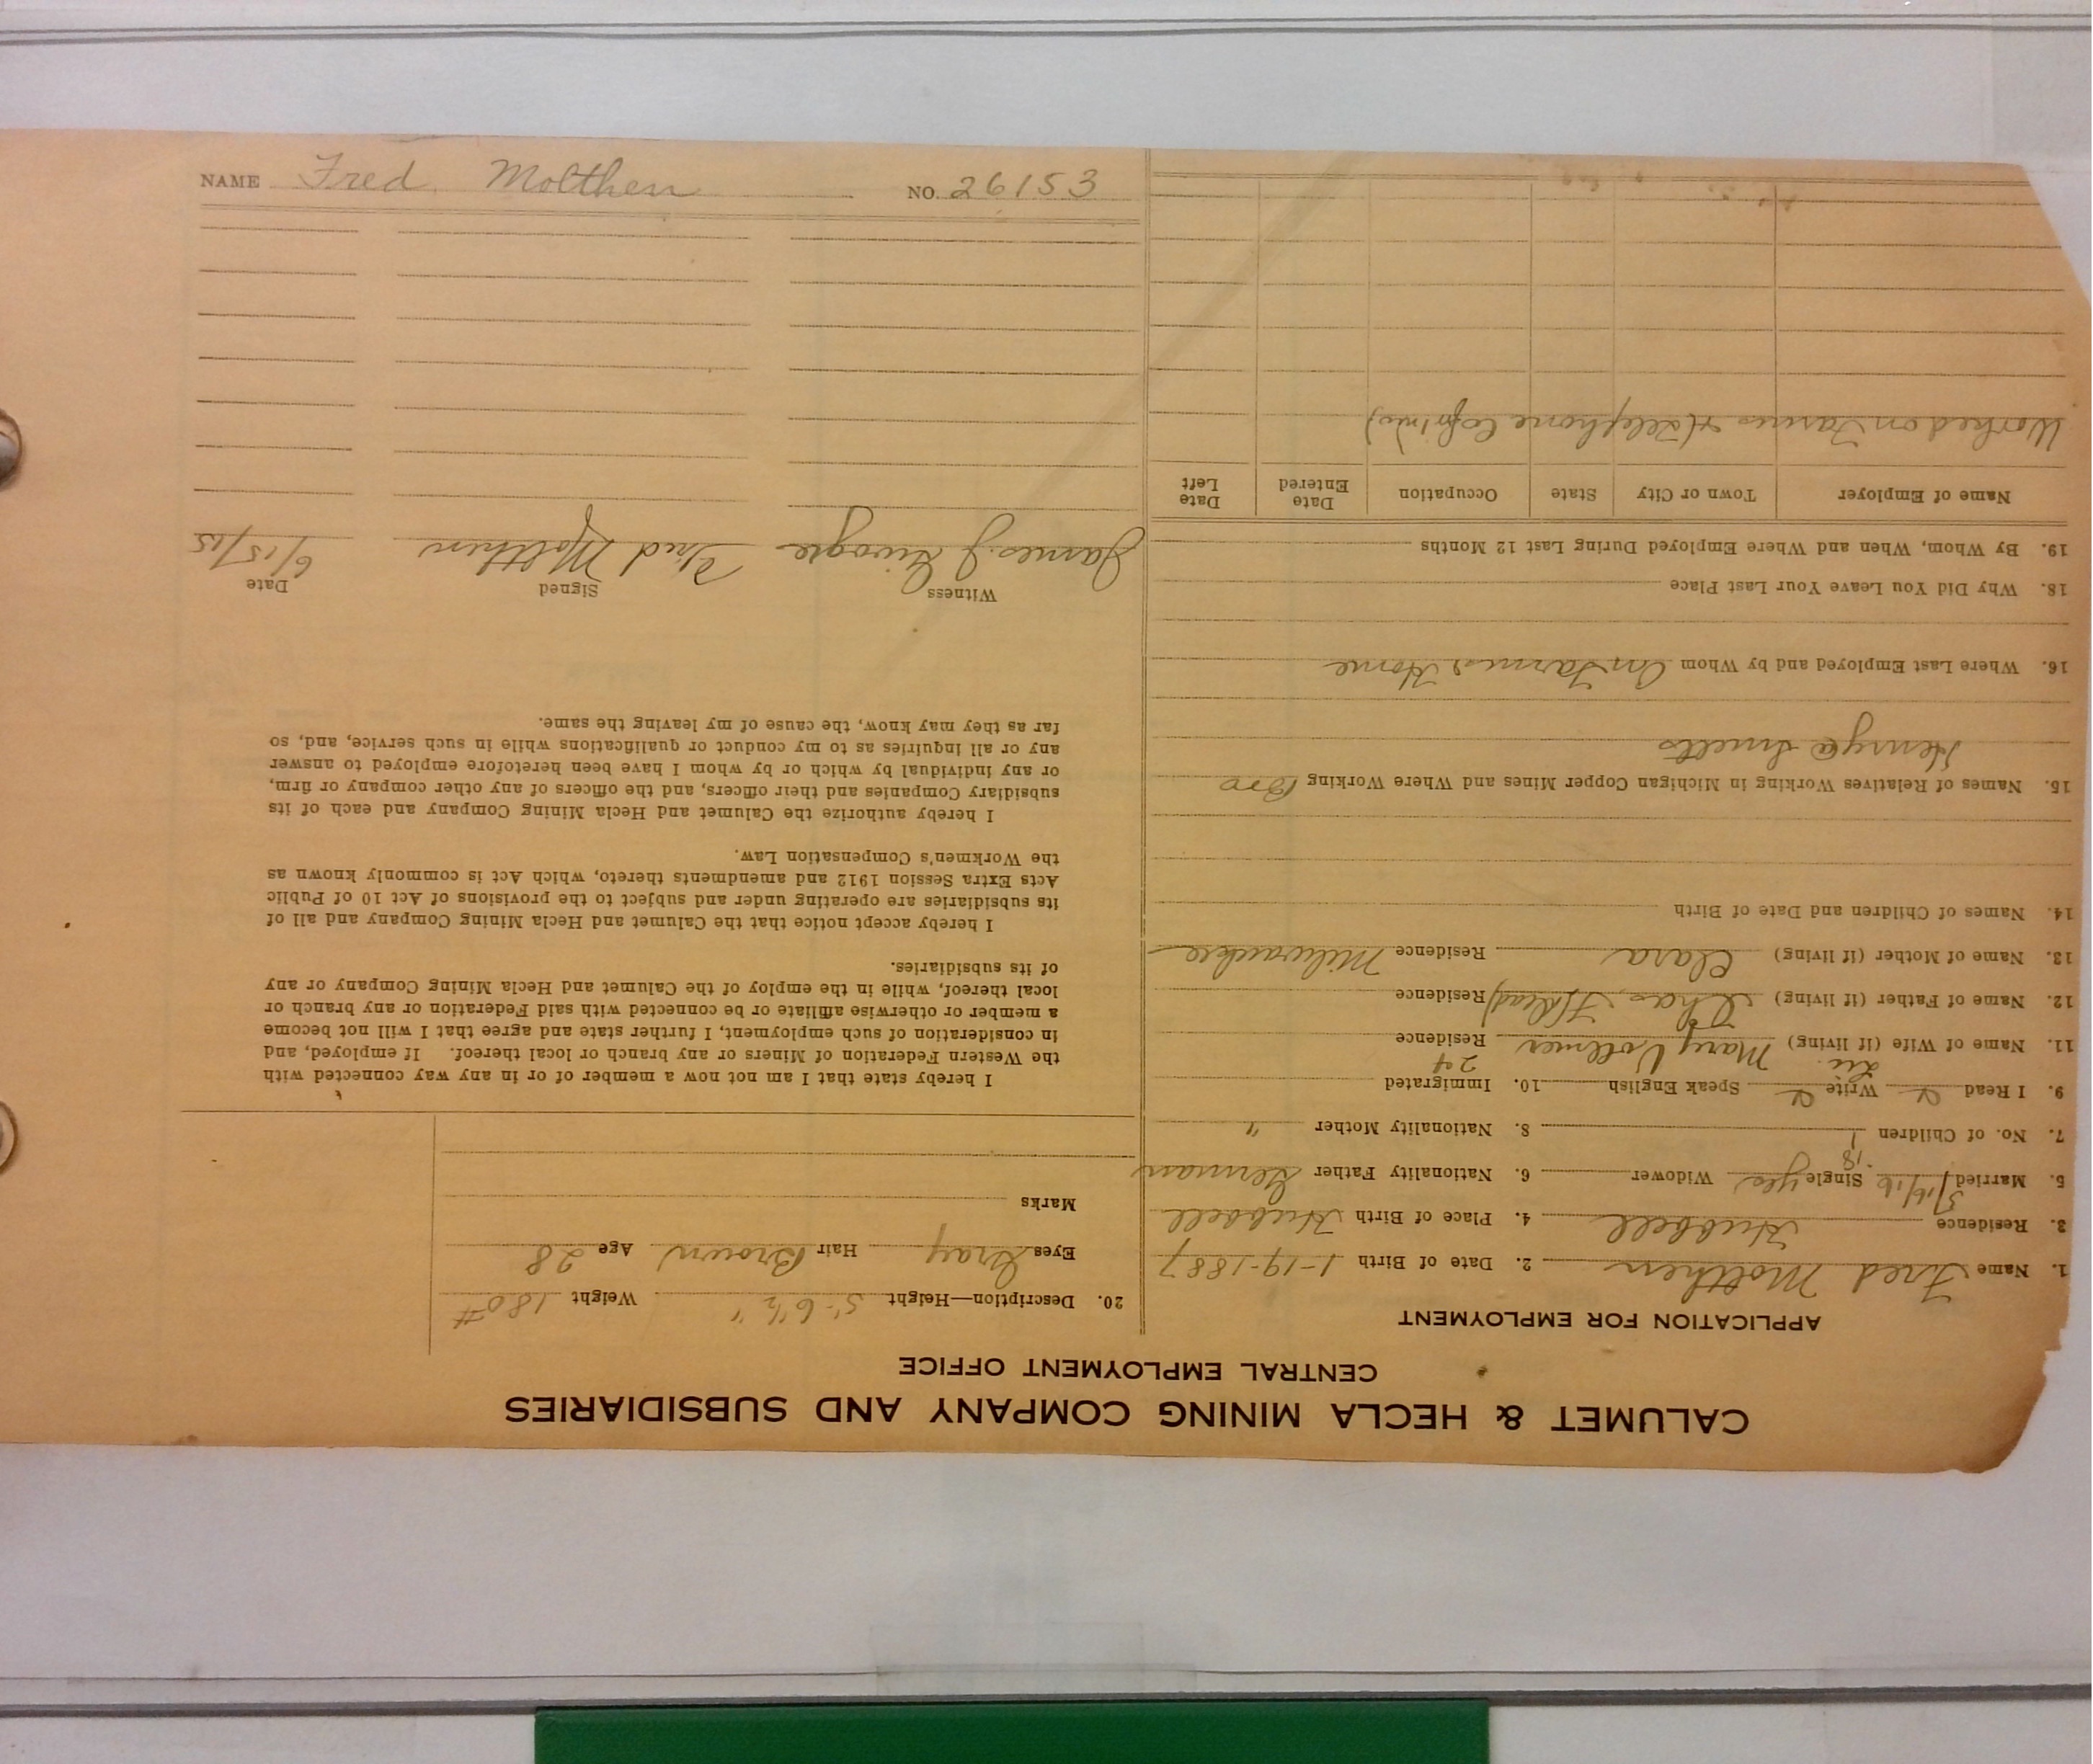 NAME Fred Molthen NO. 26153
CALUMET & HECLA MINING COMPANY AND SUBSIDIARIES
CENTRAL EMPLOYMENT OFFICE
APPLICATION FOR EMPLOYMENT
1. Name Fred Molthen 2. Date of Birth 1-19-1887
3. Residence Hubbell 4. Place of Birth Hubbell
5. Married 3/16/16 Single yes Widower 6. Nationality Father German
18
7. No. of Children 1 8. Nationality Mother "
9. I Read Write Speak English 10. Immigrated
24
11. Name of Wife (if living) Mary Vollmer Residence
12. Name of Father (if living) Chas. F. (dead) Residence
13. Name of Mother (if living) Clara Residence Milwaukee
14. Names of Children and Date of Birth
15. Names of Relatives Working in Michigan Copper Mines and Where Working Bro
Henry @ Smelts
16. Where Last Employed and by Whom On Farm @ Home
18. Why Did You Leave Your Last Place
19. By Whom, When and Where Employed During Last 12 Months
Name of Employer Town or City State Occupation Date Entered Date Left
Worked on Farms & (Telephone
20. Description—Height 5'-6½" Weight 180#
Eyes Gray Hair Brown Age 28
Marks
I hereby state that I am not now a member of or in any way connected with
the Western Federation of Miners or any branch or local thereof. If employed, and
in consideration of such employment, I further state and agree that I will not become
a member or otherwise affiliate or be connected with said Federation or any branch or
local thereof, while in the employ of the Calumet and Hecla Mining Company or any
of its subsidiaries.
I hereby accept notice that the Calumet and Hecla Mining Company and all of
its subsidiaries are operating under and subject to the provisions of Act 10 of Public
Acts Extra Session 1912 and amendments thereto, which Act is commonly known as
the Workmen's Compensation Law.
I hereby authorize the Calumet and Hecla Mining Company and each of its
subsidiary Companies and their officers, and the officers of any other company or firm,
or any individual by which or by whom I have been heretofore employed to answer
any or all inquiries as to my conduct or qualifications while in such service, and, so
far as they may know, the cause of my leaving the same.
Witness Signed Date
James J. Fred Molthen 6/15/15